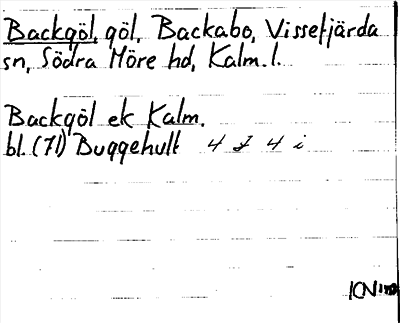 Backgöl, göl, Backabo, Vissefjärda
sn, Södra Möre hd, Kalm. l.
Backgöl ek Kalm.
bl. (71) Buggehult 4 f 4 i
ICN